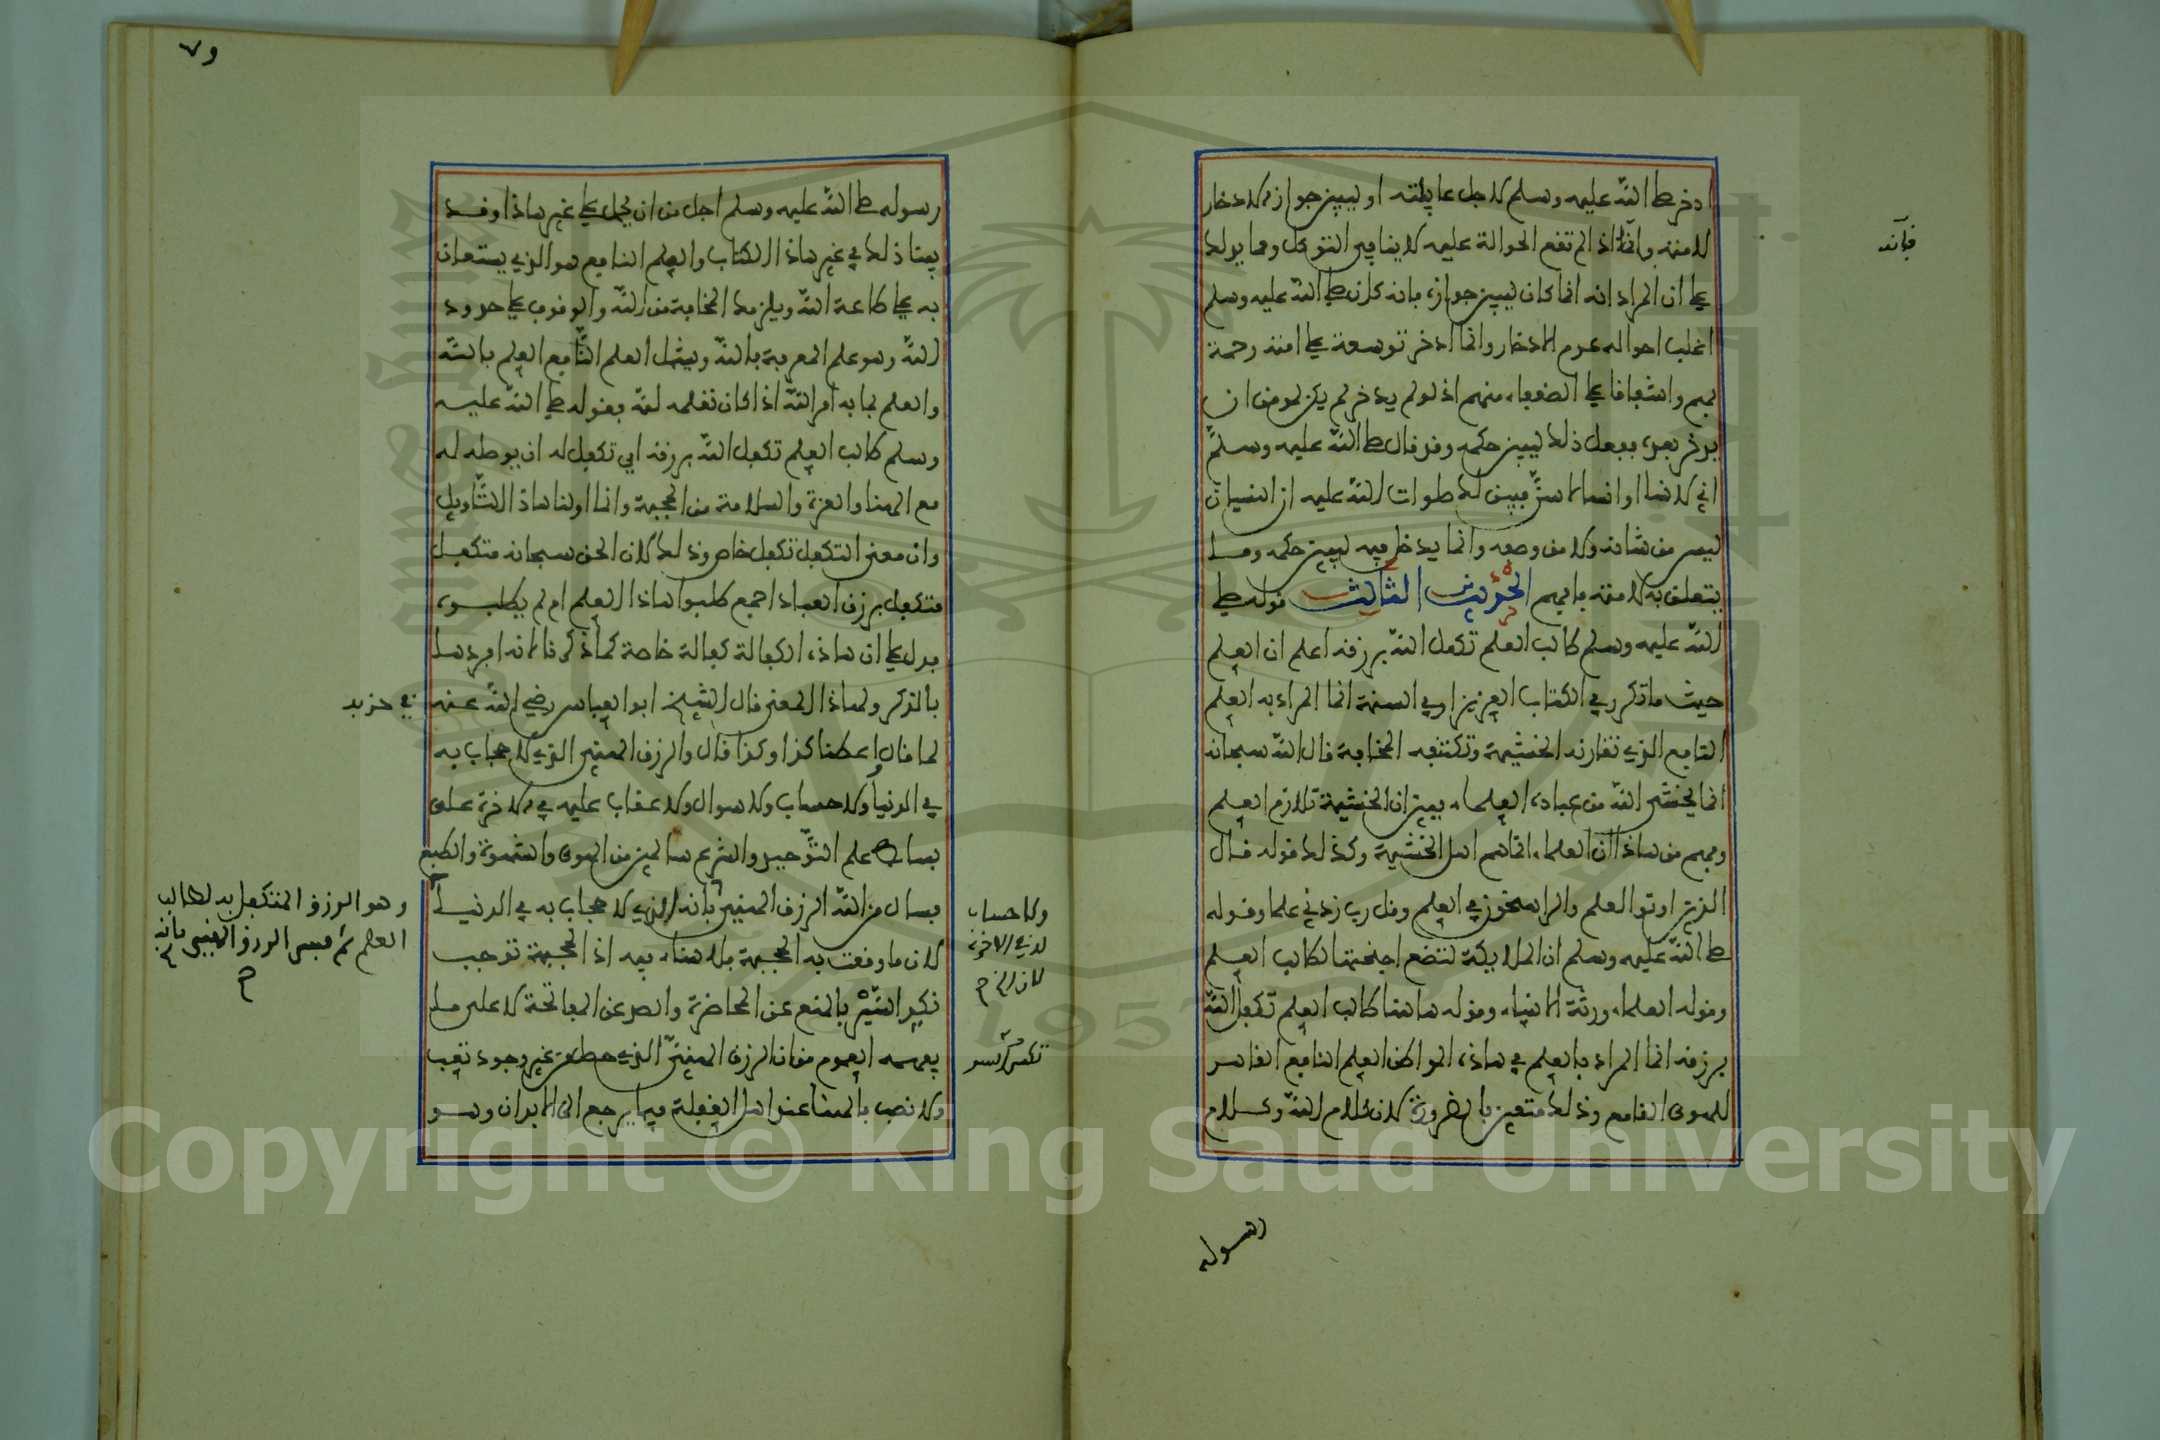 ادخر صلى الله عليه وسلم لاجل عايلته او ليبين جواز الادخار
لامته وانه اذا لم تقع الحوالة عليه لا ينافي التوكل ومما يدلك
على ان المراد انه انما كان ليبين جوازه بانه كان صلى الله عليه وسلم
اغلب احواله عدم الادخار وانما ادخر توسعة على امته رحمة
لهم واشفاقا على الضعفاء منهم اذ لو لم يدخر لم يكن لمومن ان
يدخر بعده ففعل ذلك ليبين حكمه وقد قال صلى الله عليه وسلم
اني لانسا او انسا لاسن فبين لك صلوات الله عليه ان النسيان
ليس من شانه ولا من وصفه وانما يدخل فيه ليبين حكمه وما
يتعلق به لامته فافهم الحديث الثالث قوله صلى
الله عليه وسلم طالب العلم تكفل الله برزقه اعلم ان العلم
حيث ما تكرر في الكتاب العزيز او في السنة انما المراد به العلم
النافع الذي تقارنه الخشية وتكتنفه المخافة قال الله سبحانه
انما يخشى الله من عباده العلماء فبين ان الخشية تلازم العلم
وفهم من هاذا ان العلماء انما هم اهل الخشية وكذلك قوله قال
الذين اوتوا العلم والراسخون في العلم وقل رب زدني علما وقوله
صلى الله عليه وسلم ان الملايكة لتضع اجنحتها لطالب العلم
وقوله العلماء ورثة الانبياء وقوله هاهنا طالب العلم تكفل الله
برزقه انما المراد بالعلم في هاذه المواطن العلم النافع القاهر
للهوى القامع وذلك متعين بالضرورة لان كلام الله وكلام
رسوله
٧٩
رسوله صلى الله عليه وسلم اجل من ان يحمل على غير هاذا وقد
بينا ذلك في غير هاذا الكتاب والعلم النافع هو الذي يستعان
به على طاعة الله ويلزمك المخافة من الله والوقوف على حدود
الله وهو علم المعرفة بالله ويشمل العلم النافع العلم بالله
والعلم بما به امر الله اذا كان تعلمه لله فقوله صلى الله عليه
وسلم طالب العلم تكفل الله برزقه اي تكفل له ان يوصله له
مع الهنا والعزة والسلامة من الحجبة وانما اولنا هاذا التاويل
وان معنى التكفل تكفل خاص وذلك لان الحق سبحانه متكفل
متكفل برزق العباد اجمع طلبوا هاذا العلم ام لم يطلبوه
فدل على ان هاذه الكفالة كفالة خاصة كما ذكرنا لانه افردها
بالذكر ولهاذا المعنى قال الشيخ ابو العباس رضي الله عنه في حزبه
لما قال واعطنا كذا وكذا قال والرزق الهني الذي لا حجاب به
في الدنيا ولا حساب ولا سوال ولا عقاب عليه في الاخرة على
بساط علم التوحيد والشرع سالمين من الهوى والشهوة والطبع
فسال من الله الرزق الهني بانه الذي لا حجاب به في الدنيا
لان ما وقعت به الحجبة فلا هناء فيه اذ الحجبة توجب
بالمنع عن المحاضرة والصد عن المفاتحة لا على ما
يفهمه العموم من ان الرزق الهني الذي حصل من غير وجود تعب
ولا نصب فالهنا عند اهل الغفلة فيما يرجع الى الابدان وهو
وهو الرزق المتكفل به لطالب
العلم ثم فسر الرزق الهني بانه
ولا حساب